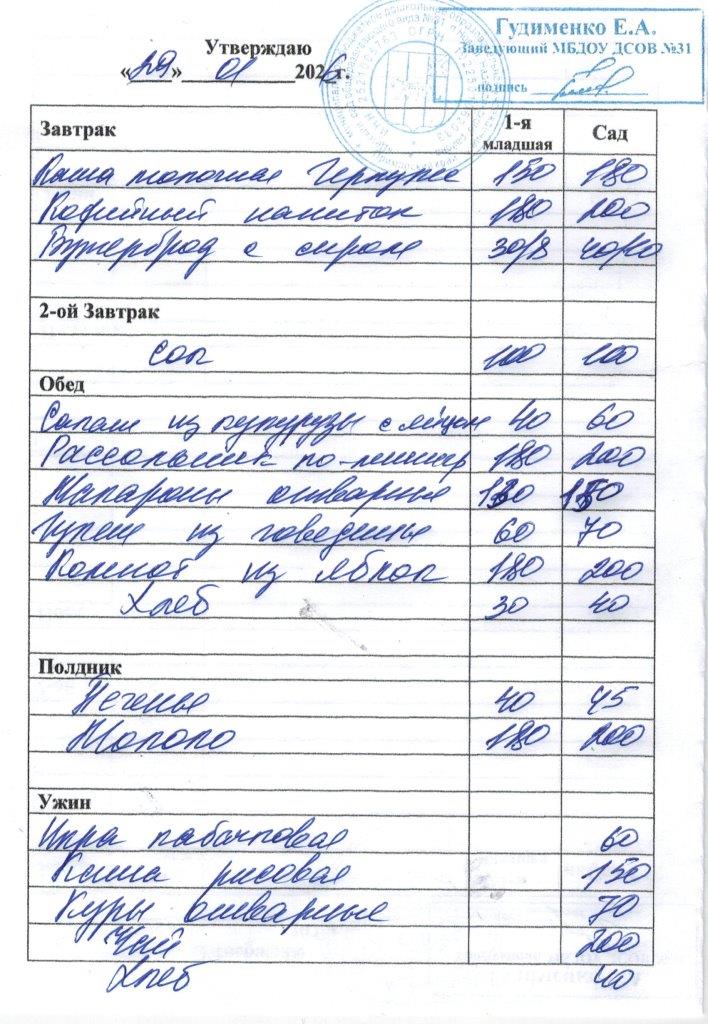 Утверждаю
«29» 01 2026г.
Гудименко Е.А.
Заведующий МБДОУ ДСОВ №31
подпись
Завтрак 1-я младшая Сад
Каша молочная Геркулес 150 180
Кофейный напиток 180 200
Бутерброд с сыром 30/8 40/10
2-ой Завтрак
Сок 100 100
Обед
Салат из кукурузы с яйцом 40 60
Рассольник по-ленингр 180 200
Макароны отварные 130 150
Гуляш из говядины 60 70
Компот из яблок 180 200
Хлеб 30 40
Полдник
Печенье 40 45
Молоко 180 200
Ужин
Икра кабачковая 60
Каша рисовая 150
Куры отварные 70
Чай 200
Хлеб 40